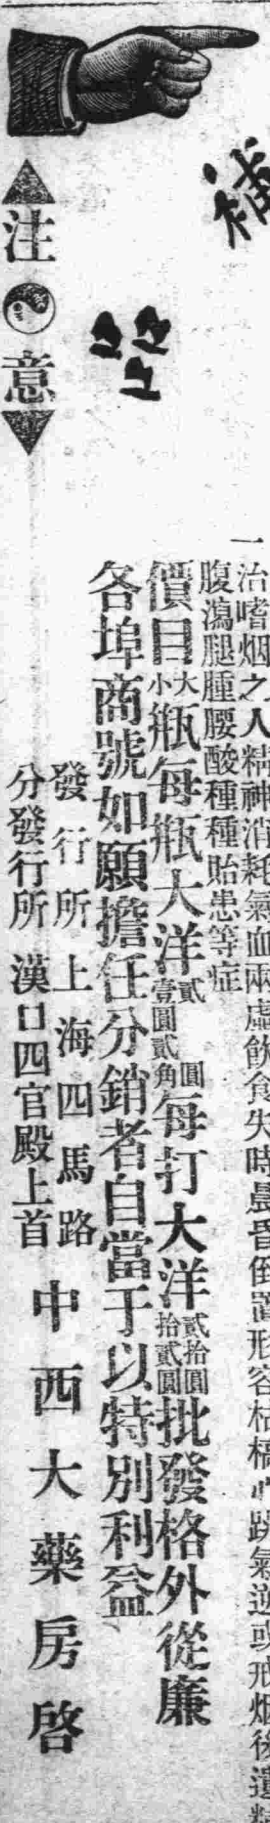 補
一治嗜烟之人精神消耗氣血兩虛飲食失時晨昏倒置形容枯槁心跳氣逆或戒烟後遺精
腹瀉腿腫腰酸種種貽患等症
價目大小瓶每瓶大洋貳圓壹圓貳角每打大洋貳拾圓拾貳圓批發格外從廉
各埠商號如願擔任分銷者自當予以特別利益
發行所上海四馬路
分發行所漢口四官殿上首
中西大藥房啓
注意